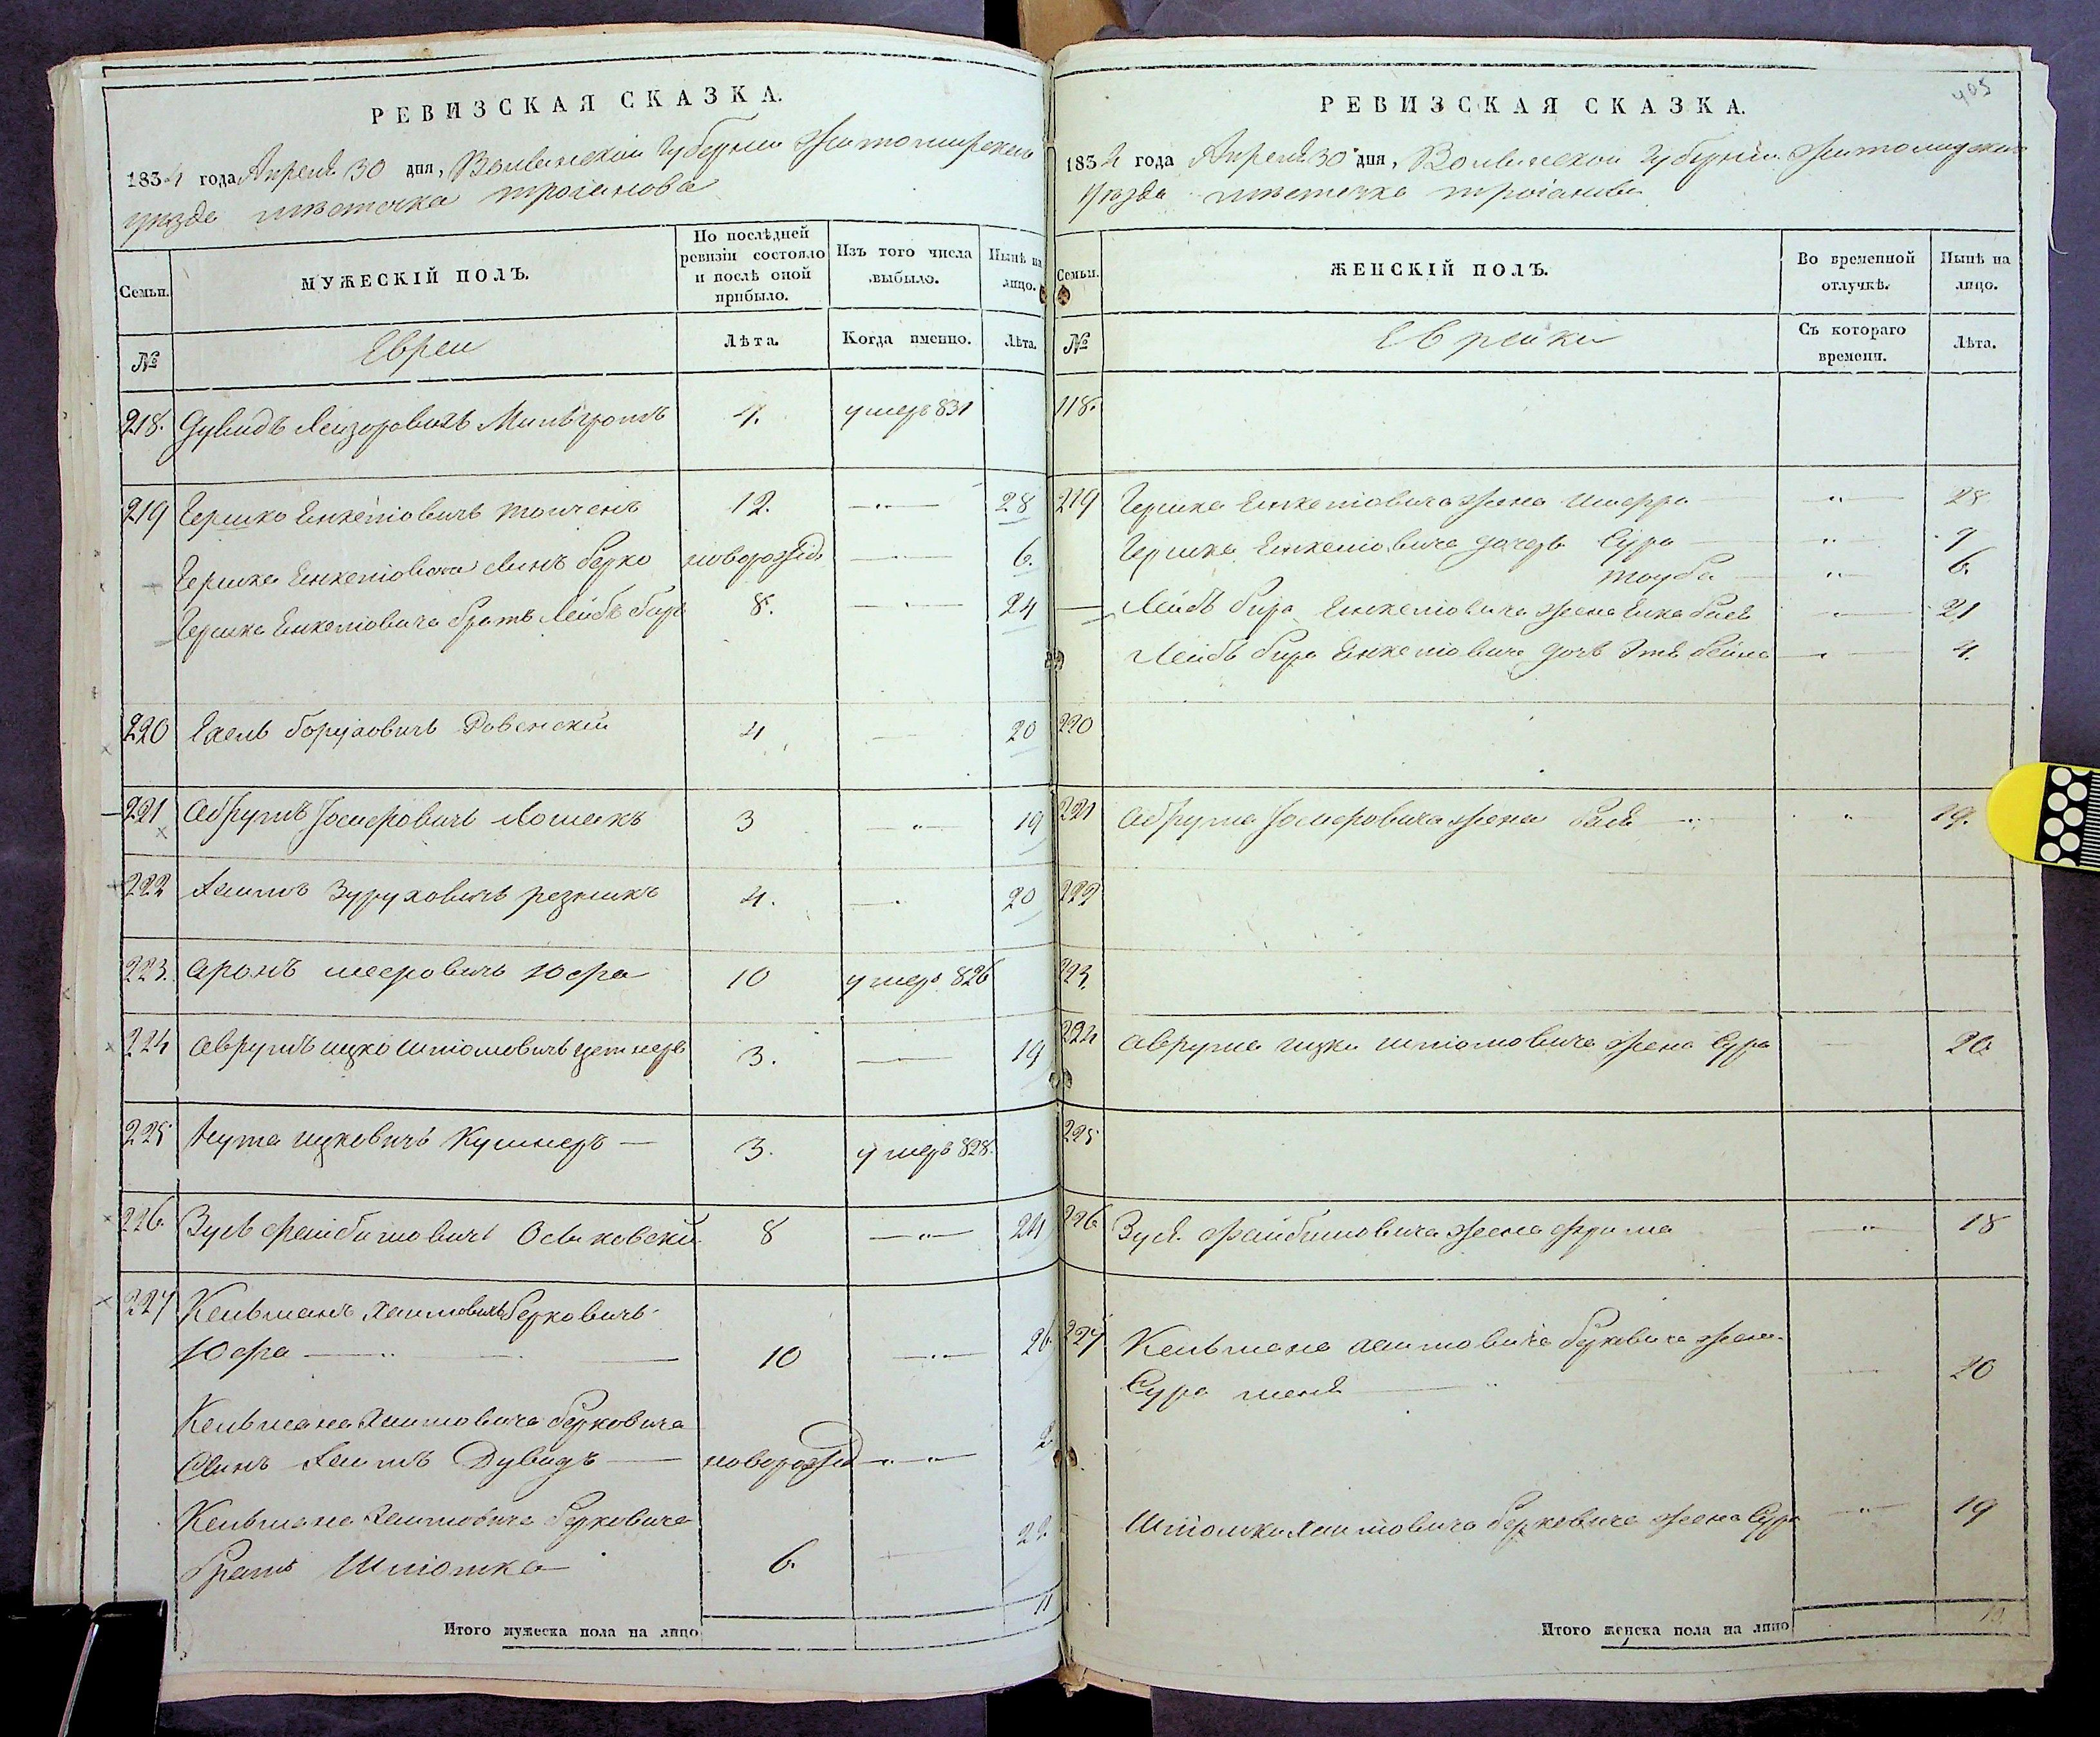 РЕВИЗСКАЯ СКАЗКА.
1834 года Апреля 30 дня, Волынской Губернии Житомирскаго
уезда местечка Троianова
Семьи.
МУЖЕСКІЙ ПОЛЪ.
По послѣдней ревизіи состояло и послѣ оной прибыло.
Изъ того числа выбыло.
Нынѣ на лицо.
№
Евреи
Лѣта.
Когда именно.
Лѣта.
218. Дувидъ Лейзоровичъ 4. умеръ 831
219 Гершко Енкелiовичъ 12. 28
Гершка Енкелiовича Синъ Берко новорожд. 6.
Гершка Енкелiовича братъ Лейбъ Бер 8. 24
220 Боруховичъ Ровенскiй 4 20
221 Абрумъ Iосиеровичъ Лошакъ 3 19
222 Хаимъ Зуруховичъ резникъ 4. 20
223. Аронъ Мееровичъ Юфа 10 умеръ 826
224 Аврумъ Ицко Шлiомовичъ 3. 19
225 Нута Ицковичъ Кушнеръ 3. умеръ 828.
226. Зусь Файбишовичъ 8 24
227 Кельманъ Хаимовичъ Берковичъ
Юфа 10 26.
Кельмана Хаимовича Берковича
Синъ Хаимъ Дувидъ новорожд 2
Кельмана Хаимовича Берковича
братъ Шлiомка 6. 22.
Итого мужеска пола на лицо 11
405
РЕВИЗСКАЯ СКАЗКА.
1834 года Апреля 30 дня, Волынской Губернiи Житомирскаго
Уезда местечка Троianова
Семьи.
ЖЕНСКІЙ ПОЛЪ.
Во временной отлучкѣ.
Нынѣ на лицо.
№
Еврейки
Съ котораго времени.
Лѣта.
118.
219 Гершка Енкелiовича жена 28
Гершка Енкелiовича дочерь Сура 9
Тауба 6.
Лейбъ Бера Енкелiовича жена 21
Лейбъ Бера Енкелiовича дочь Бейла 4.
220
221 Абрума Iосиеровича жена 19.
222
223.
224 Аврума Ицки Шлiомовича жена Сура 20.
225
226 Зуся Файбишовича жена Фрима 18
227 Кельмана Хаимовича Берковича жена
Сура 20
Шлiомки Хаимовича Берковича жена Сура 19
Итого женска пола на лицо 10